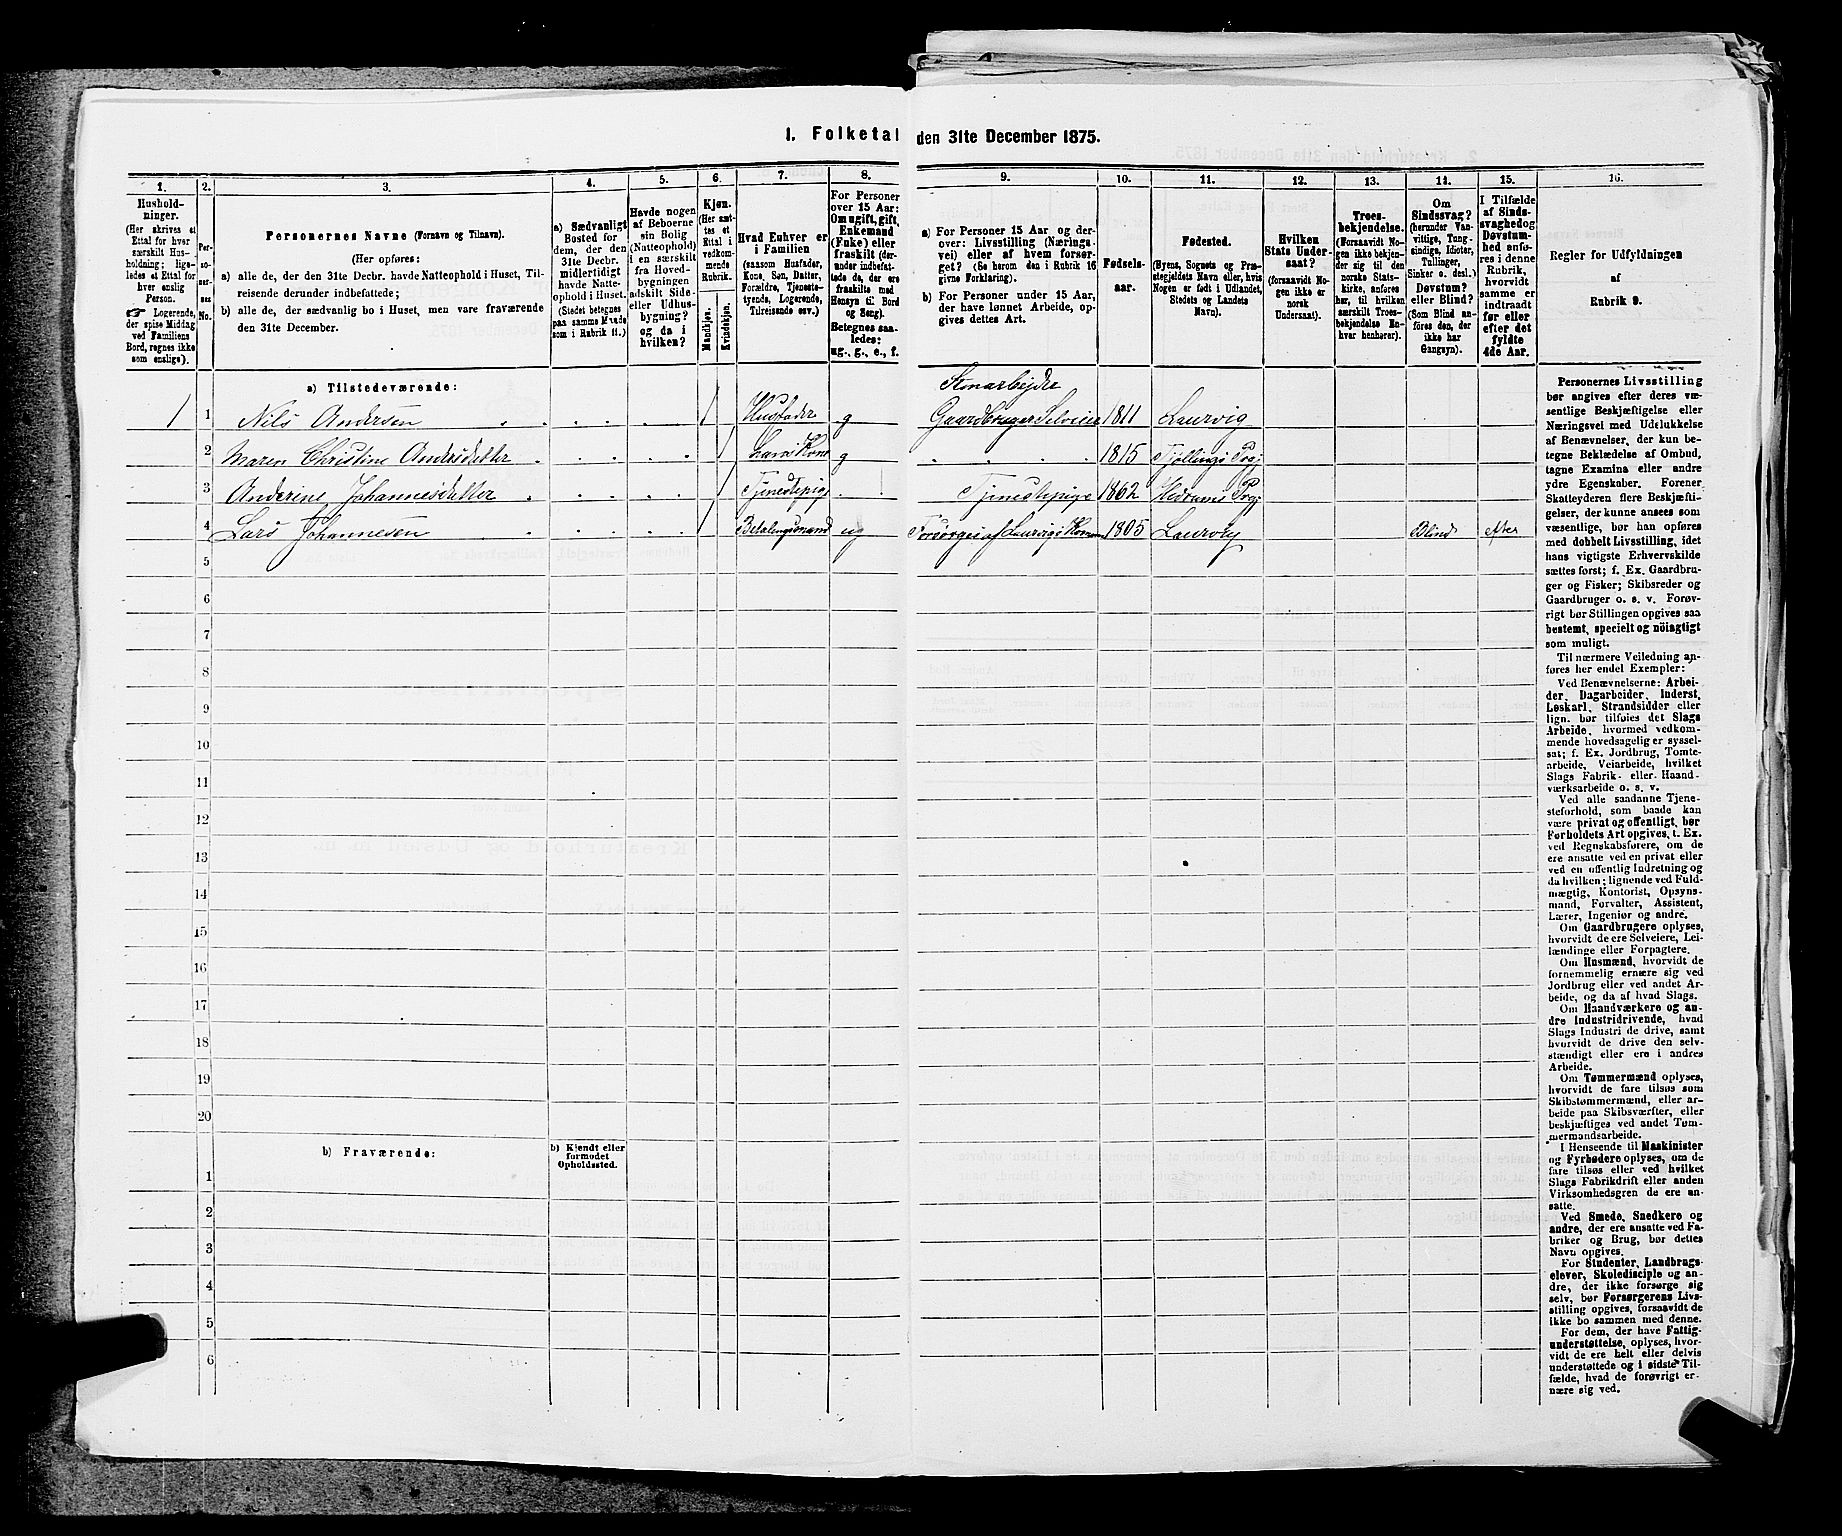 1. Folketal den 31te December 1875.
1. 2. 3. 4. 5. 6. 7. 8. 9. 10. 11. 12. 13. 14. 15. 16.
Hushold-
ninger.
(Her skrives et
Ettal for hver
særskilt Hus-
holdning; lige-
ledes et Ettal for
hver enslig
Person.
☞ Logerende,
der spise Middag
ved Familiens
Bord, regnes ikke
som enslige).
Per-
so-
ner-
nes
No.
Personernes Navne (Fornavn og Tilnavn).
(Her opføres:
a) alle de, der den 31te Decbr. havde Natteophold i Huset, Til-
reisende derunder indbefattede;
b) alle de, der sædvanlig bo i Huset, men vare fraværende
den 31te December.
a) Sædvanligt
Bosted for
dem, der den
31te Decbr.
midlertidigt
havde Natte-
ophold i Huset.
(Stedet betegnes
paa samme Maade
som i Rubrik 11.)
Havde nogen
af Beboerne
sin Bolig
(Natteophold)
i en særskilt
fra Hoved-
bygningen
adskilt Side-
eller Udhus-
bygning?
og da i
hvilken?
Kjøn.
(Her sæt-
tes et
Ettal i
vedkom-
mende
Rubrik.
Mandkjøn.
Kvindekjøn.
Hvad Enhver er
i Familien
(saasom Husfader,
Kone, Søn, Datter,
Forældre, Tjeneste-
tyende, Logerende,
Tilreisende osv.)
For Personer
over 15 Aar:
Om ugift, gift,
Enkemand
(Enke) eller
fraskilt (der-
under indbefat-
tede de, der ere
fraskilte med
Hensyn til Bord
og Seng).
Betegnes saa-
ledes:
ug., g., e., f.
a) For Personer 15 Aar og der-
over: Livsstilling (Nærings-
vei) eller af hvem forsør-
get? (Se herom den i Rubrik 16
givne Forklaring).
b) For Personer under 15 Aar,
der have lønnet Arbeide, op-
gives dettes Art.
Fødsels-
aar.
Fødested.
(Byens, Sognets og Præ-
stegjeldets Navn eller, hvis
Nogen er født i Udlandet,
Stedets og Landets
Navn).
Hvilken
Stats Under-
saat?
(forsaavidt No-
gen ikke er
norsk
Undersaat).
Troes-
bekjendelse.
(Forsaavidt No-
gen ikke bekjen-
der sig til den
norske Stats-
kirke, anføres
her, til hvilken
særskilt Troes-
bekjendelse En-
hver henhører).
Om
Sindssvag?
(herunder Van-
vittige, Tung-
sindige, Idioter,
Tullinger,
Sinker o. desl.)
Døvstum?
eller Blind?
(Som Blind an-
føres den, der
ikke har
Gangsyn).
I Tilfælde
af Sinds-
svaghed og
Døvstum-
hed anfø-
res i denne
Rubrik,
hvorvidt
samme er
indtraadt
før eller
efter det
fyldte
4de Aar.
Regler for Udfyldningen
af
Rubrik 9.
a) Tilstedeværende:
Stenarbejder
1 1 Nils Andersen 1 Husfader g Gaardbruger Selveier 1811 Laurvig
2 Maren Christine Andersdatter 1 hans Kone g 1815 Tjøllings Prgj
3 Anderine Johannesdatter 1 Tjenestepige Tjenestepige 1862 Hedrums Prgj
4 Lars Johannesen 1 ug Forsørges af Laurvigs Komm 1805 Laurvig Blind efter
5
6
7
8
9
10
11
12
13
14
15
16
17
18
19
20
b) Fraværende:
b) Kjendt eller
formodet
Opholdssted.
1
2
3
4
5
6
Personernes Livsstilling
bør angives efter deres væ-
sentlige Beskjæftigelse eller
Næringsvei med Udelukkelse
af Benævnelser, der kun be-
tegne Beklædelse af Ombud,
tagne Examina eller andre
ydre Egenskaber. Forener
Skatteyderen flere Beskjæfti-
gelser, der kunne ansees som
væsentlige, bør han opføres
med dobbelt Livsstilling, idet
hans vigtigste Erhvervskilde
sættes først; f. Ex. Gaardbru-
ger og Fisker; Skibsreder og
Gaardbruger o. s. v. Forøv-
rigt bør Stillingen opgives saa
bestemt, specielt og nöiagtigt
som muligt.
Til nærmere Veiledning an-
føres her endel Exempler:
Ved Benævnelserne: Arbei-
der, Dagarbeider, Inderst,
Løskarl, Strandsidder eller
lign. bør tilføies det Slags
Arbeide, hvormed vedkom-
mende hovedsagelig er syssel-
sat; f. Ex. Jordbrug, Tomte-
arbeide, Veiarbeide, hvilket
Slags Fabrik- eller Haand-
værksarbeide o. s. v.
Ved alle saadanne Tjene-
steforhold, som baade kan
være privat og offentligt, bør
Forholdets Art opgives, t. Ex.
ved Regnskabsførere, om de
ere ansatte ved en privat eller
ved en offentlig Indretning og
da hvilken; lignende ved Fuld-
mægtig, Kontorist, Opsyns-
mand, Forvalter, Assistent,
Lærer, Ingeniør og andre.
Om Gaardbrugere oplyses,
hvorvidt de ere Selveiere, Lei-
lændinge eller Forpagtere.
Om Husmænd, hvorvidt de
fornemmelig ernære sig ved
Jordbrug eller ved andet Ar-
beide, og da af hvad Slags.
Om Haandværkere og an-
dre Industridrivende, hvad
Slags Industri de drive, samt
hvorvidt de drive den selv-
stændigt eller ere i andres
Arbeide.
Om Tømmermænd oplyses,
hvorvidt de fare tilsøs som
Skibstømmermænd, eller ar-
beide paa Skibsværfter, eller
beskjæftiges ved andet Tøm-
mermandsarbeide.
I Henseende til Maskinister
og Fyrbødere oplyses, om de
fare tilsøs eller ved hvilket
Slags Fabrikdrift eller anden
Virksomhedsgren de ere an-
satte.
Ved Smede, Snedkere og
andre, der ere ansatte ved Fa-
briker og Brug, bør dettes
Navn opgives.
For Studenter, Landbrugs-
elever, Skoledisciple og an-
dre, der ikke forsørge sig
selv, bør Forsørgerens Livs-
stilling opgives, forsaavidt de
ikke bo sammen med denne.
For dem, der have Fattig-
understøttelse, oplyses, hvor-
vidt de ere helt eller delvis
understøttede og i sidste Til-
fælde, hvad de forøvrigt er-
nære sig ved.